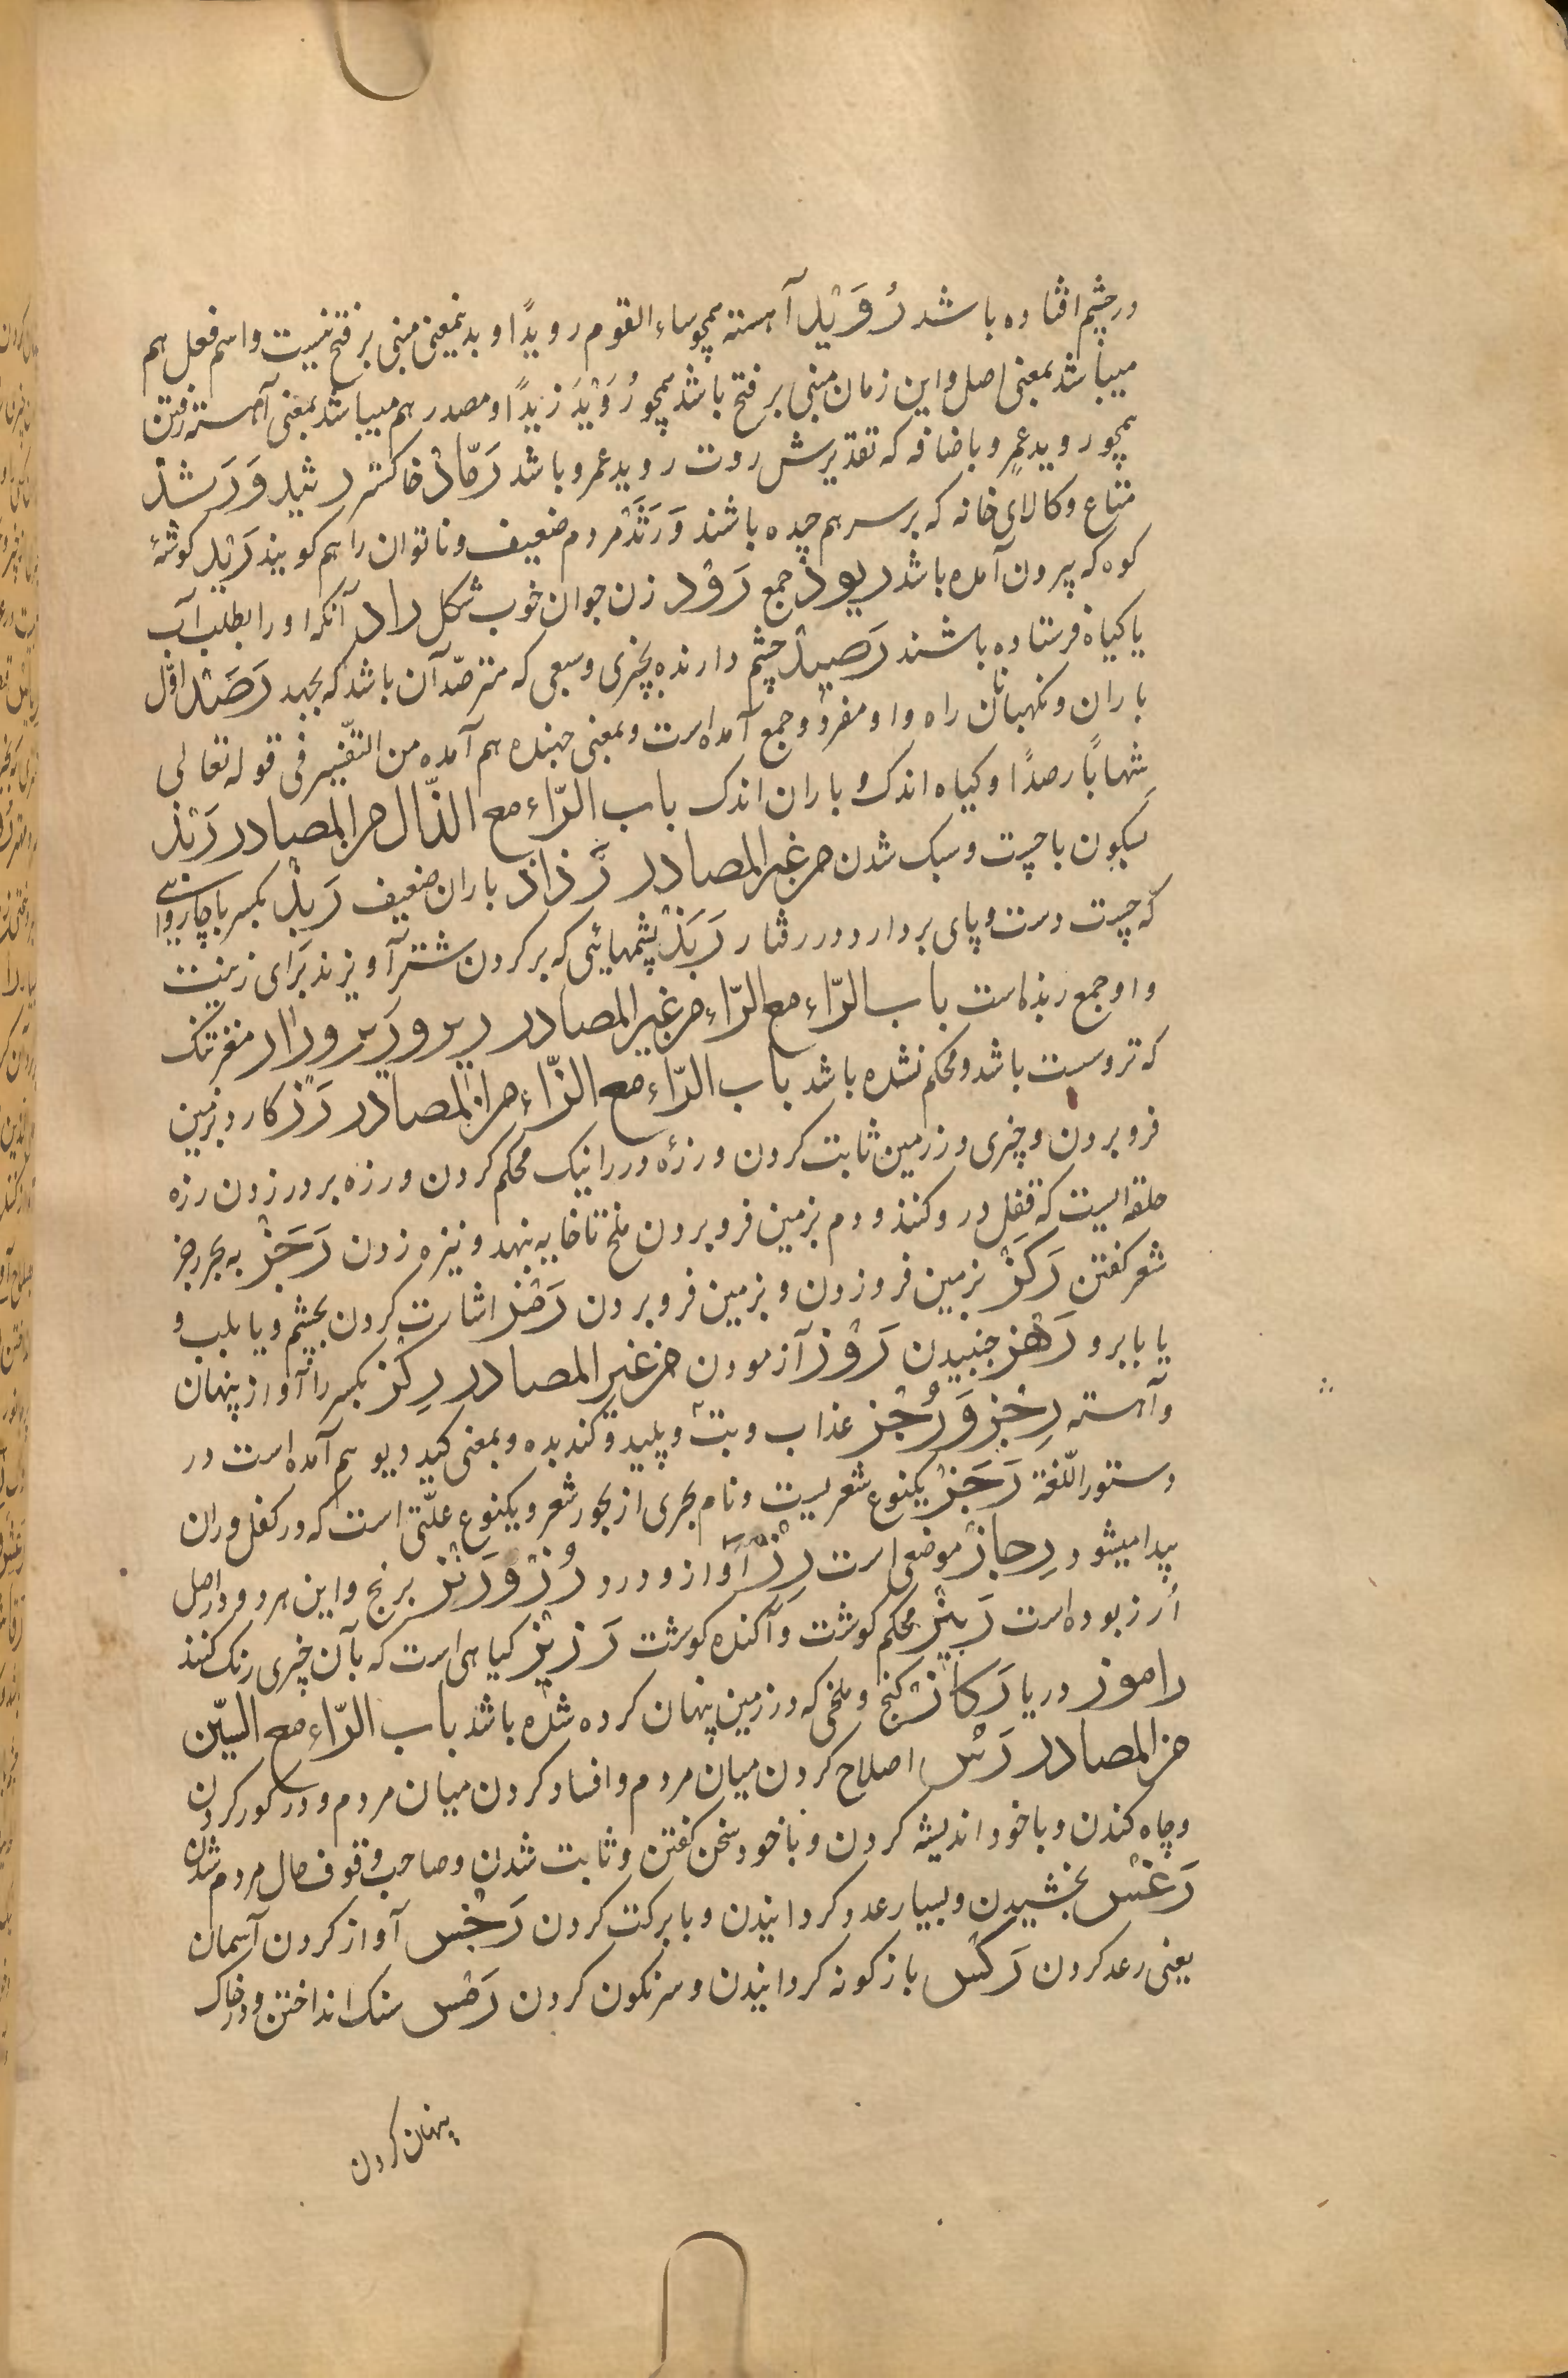 در چشم افتاده باشد رُوَیْد آهسته همچو ساء القوم رویدًا و بدینمعنی مبنی بر فتح نیست و اسم فعل هم
میباشد بمعنی اصل و این زمان مبنی بر فتح باشد همچو رُوَیْدَ زیدًا و مصدر هم میباشد بمعنی آهسته رفتن
همچو روید عمرٍ و باضافه که تقدیرش روت روید عمرو باشد رَمَادْ خاکستر رثید وَرَشَد
متاع و کالای خانه که بر سر هم چیده باشند وَ رَثَدْ مردم ضعیف و ناتوان را هم کویند رَیْد کوشهٔ
کوه که بیرون آمده باشد ریودْ جمع رَوْد زن جوان خوب شکل راد آنکه او را بطلب آب
یا کیاه فرستاده باشند رَصِیدْ چشم دارنده بچیزی و سبعی که مترصّد آن باشد که بجهد رَصَدْ اوّل
باران و نکهبانان راه و او مفرد و جمع آمده است و بمعنی جهنده هم آمده من التفسیر فی قوله تعالی
شِهابًا رصدًا و کیاه اندک و باران اندک باب الرّاء مع الذّال من المصادر رَبْذ
بسکون با چست و سبک شدن من غیر المصادر رَذاذ باران ضعیف رَبِذْ بکسر با چاروایی
که چست دست و پای بردارد در رفتار رَبَذْ پشمهایی که بر کردن شتر آویزند برای زینت
و او جمع ربذه است باب الرّاء مع الرّاء من غیر المصادر رِیر و رَیر و رَار مغز تنک
که تر و سست باشد و محکم نشده باشد باب الرّاء مع الزّاء من المصادر رَزّ کارد بزمین
فرو بردن و چیزی در زمین ثابت کردن و رزّه در را نیک محکم کردن و رزه بر در زدن رزه
حلقه ایست که قفل در و کنند و دم بزمین فرو بردن ملخ تا خایه بنهد و نیزه زدن رَجَزْ به بحر رجز
شعر کفتن رَکْزْ بزمین فرو زدن و بزمین فرو بردن رَمْز اشارت کردن بچشم و یا بلب و
یا بابرو رَهْز جنبیدن رَوْز آزمودن من غیر المصادر رِکْز بکسر را آواز پنهان
و آهسته رِجْز وَ رُجْز عذاب و بت و پلید و کندیده و بمعنی کید دیو هم آمده است در
دستور اللّغة رَجَزْ یکنوع شعریست و نام بحری از بحور شعر و یکنوع علّتی است که در کفل و ران
پیدا میشود رِجازْ موضعی است رِزّ آواز و درد رُنْز وَ رَنْز برنج و این هر دو در اصل
اُرز بوده است رَبِیْز محکم کوشت و آکنده کوشت رَزِیْز کیاهی است که بآن چیزی رنک کنند
راموز دریا رَکاز کنج و ملخی که در زمین پنهان کرده شده باشد باب الرّاء مع السّین
من المصادر رَسّ اصلاح کردن میان مردم و افساد کردن میان مردم و در کور کردن
و چاه کندن و با خود اندیشه کردن و با خود سخن کفتن و ثابت شدن و صاحب وقوف حال مردم شدن
رَغْس بخشیدن و بسیار عدد کردانیدن و با برکت کردن رَجْس آواز کردن آسمان
یعنی رعد کردن رَکْس بازکونه کردانیدن و سرنکون کردن رَمْس سنک انداختن و در خاک
پنهان کردن